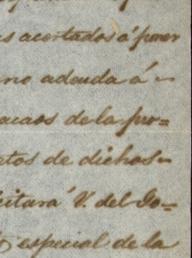 s acertados á poner
no adeuda á
acaos de la pro=
tos de dichos
citará V. del Go=
especial de la